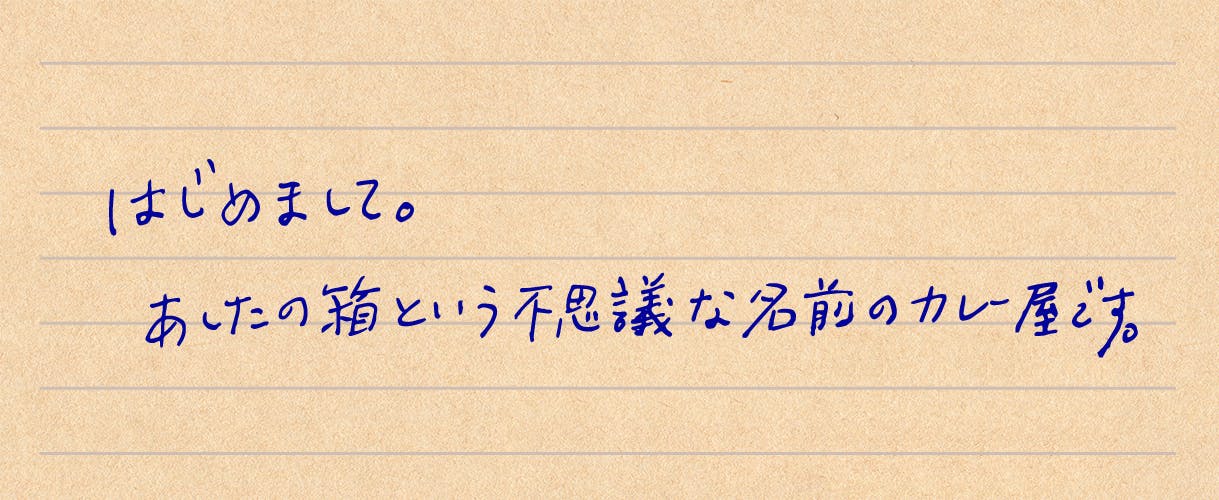 はじめまして。
あしたの箱という不思議な名前のカレー屋です。